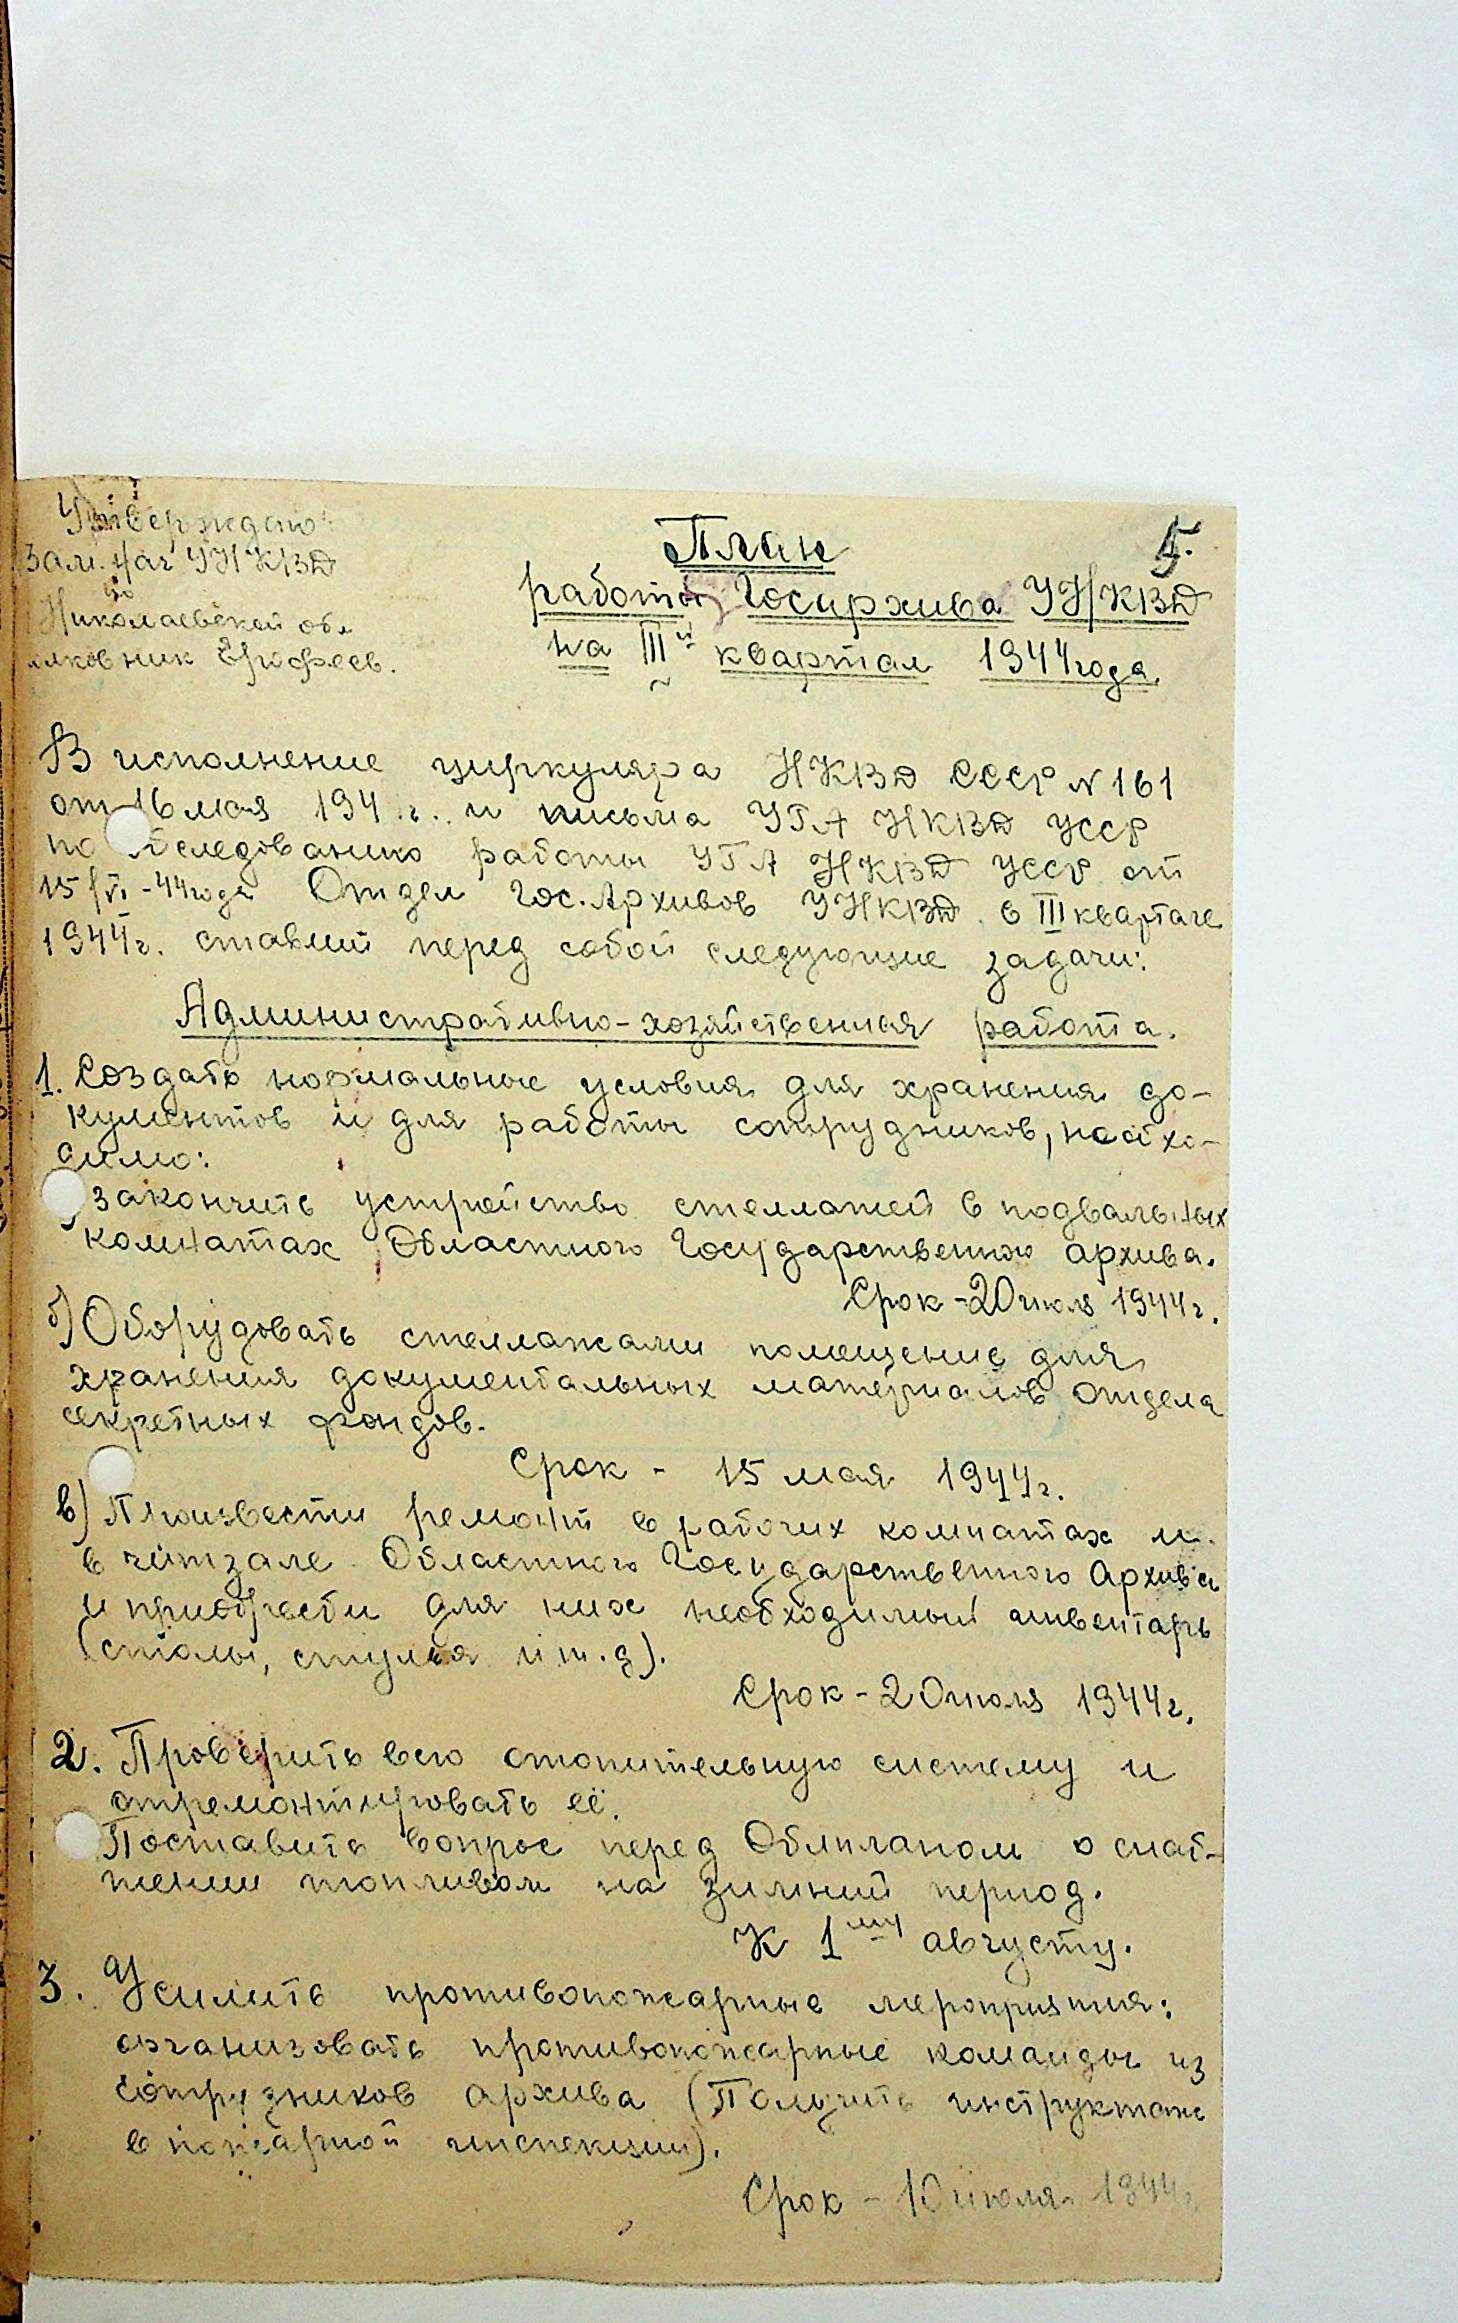 Утверждаю
Зам. Нач УНКВД
по
Николаевской обл
лковник Ерофеев.
5.
План
работы Госархива УНКВД
на III й квартал 1944 года.
В исполнение циркуляра НКВД СССР N 161
от 16 мая 194 . г. и письма УГА НКВД УССР
по обследованию работы УГА НКВД УССР от
15/VI-44 года Отдел Гос. Архивов УНКВД в III квартале
1944 г. ставит перед собой следующие задачи:
Административно-хозяйственная работа.
1. Создать нормальные условия для хранения до-
кументов и для работы сотрудников, необхо-
димо:
закончить устройство стеллажей в подвальных
комнатах Областного Государственного архива.
Срок - 20 июля 1944 г.
б) Оборудовать стеллажами помещение для
хранения документальных материалов отдела
секретных фондов.
Срок - 15 мая 1944 г.
в) Произвести ремонт в рабочих комнатах и
в читзале Областного Государственного Архива
и приобрести для них необходимый инвентарь
(столы, стулья и т. д).
Срок - 20 июля 1944 г.
2. Проверить всю отопительную систему и
отремонтировать её.
Поставить вопрос перед Облпланом о снаб-
жении топливом на зимний период.
К 1 му августу.
3. Усилить противопожарные мероприятия:
организовать противопожарные команды из
сотрудников архива (Получить инструктаж
в пожарной инспекции).
Срок - 10 июля 1944 г.